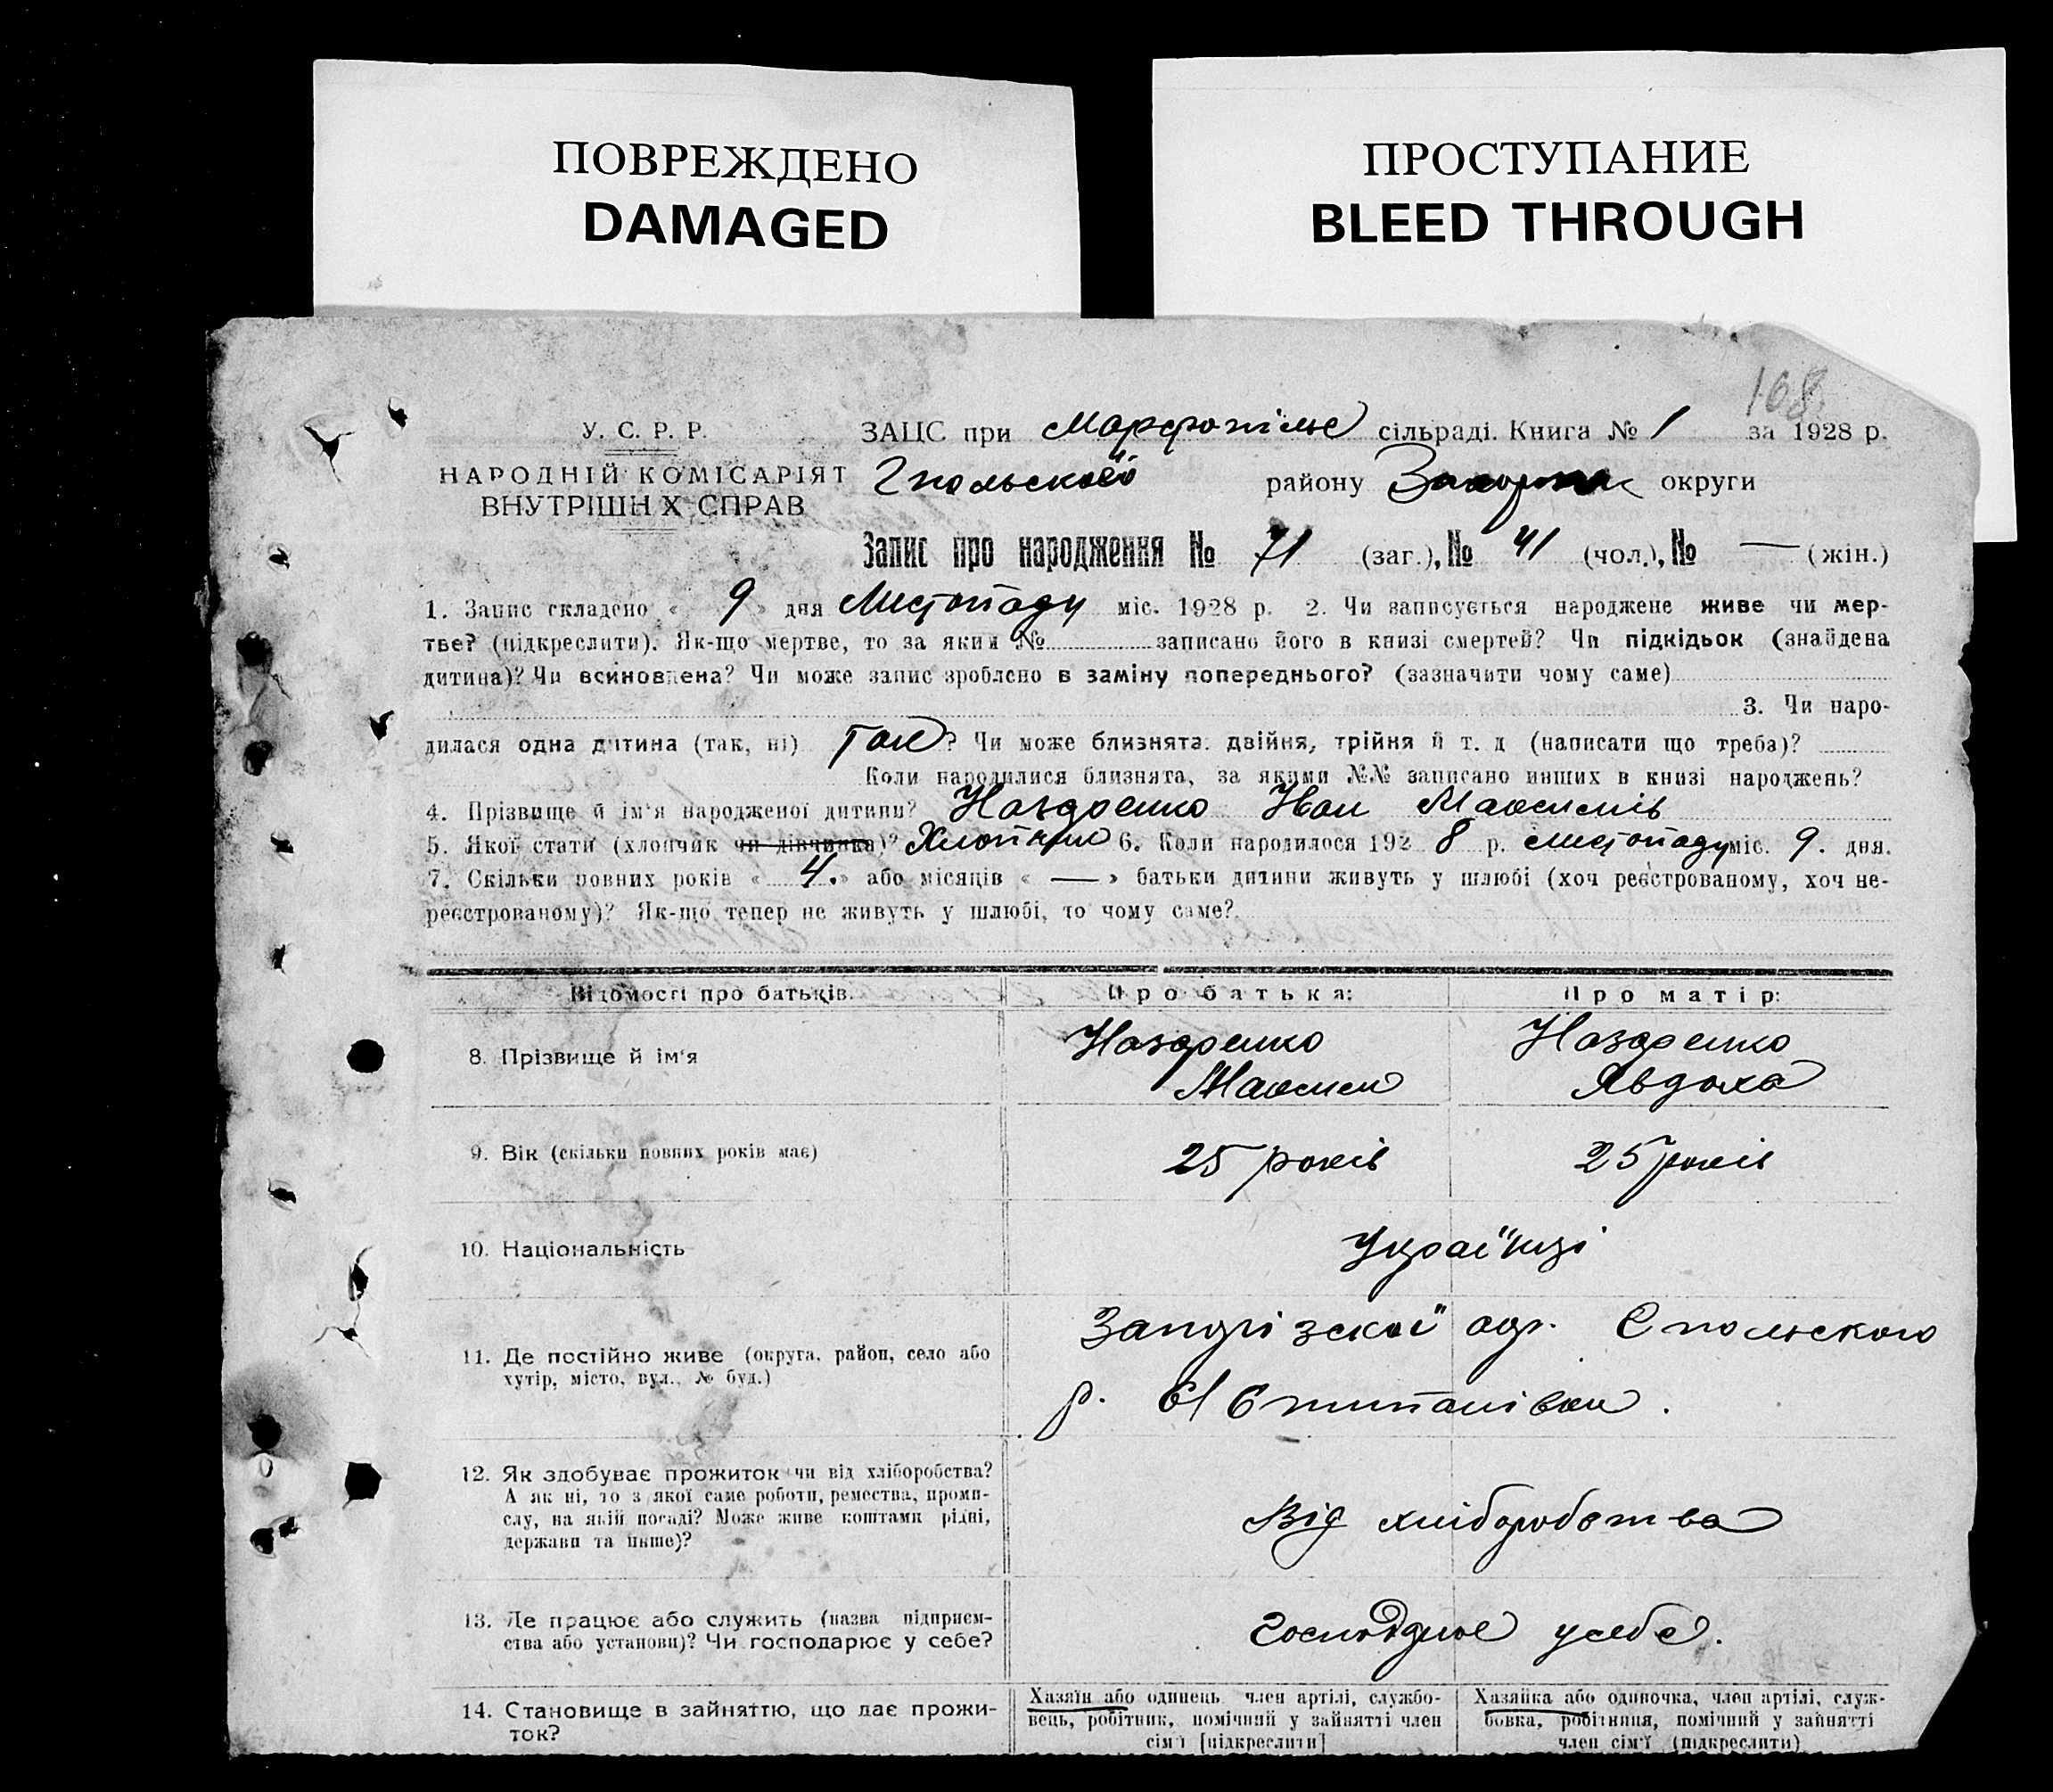 ПОВРЕЖДЕНО
DAMAGED
ПРОСТУПАНИЕ
BLEED THROUGH
168
У. С. Р. Р.
НАРОДНІЙ КОМІСАРІЯТ
ВНУТРІШН Х СПРАВ
ЗАЦС при Марфопільс сільраді. Книга № 1 за 1928 р.
району округи
Запис про народження № 71 (заг.), № 41 (чол.), № — (жін.)
1. Запис складено « 9 » дня Листопаду міс. 1928 р. 2. Чи записується народжене живе чи мер-
тве? (підкреслити). Як-що мертве, то за яким № записано його в книзі смертей? Чи підкідьок (знайдена
дитина)? Чи всиновлена? Чи може запис зроблено в заміну попереднього? (зазначити чому саме)
3. Чи наро-
дилася одна дитина (так, ні) так? Чи може близнята: двійня, трійня й т. д (написати що треба)?
Коли народилися близнята, за якими №№ записано инших в книзі народжень?
4. Прізвище й ім'я народженої дитини? Назаренко Іван Максимів
5. Якої статі (хлопчик чи дівчинка)? Хлопчик 6. Коли народилося 192 8 р. листопаду міс. 9. дня.
7. Скільки повних років « 4. » або місяців « — » батьки дитини живуть у шлюбі (хоч реєстрованому, хоч не-
реєстрованому)? Як-що тепер не живуть у шлюбі, то чому саме?
Відомості про батьків. Про батька: Про матір:
8. Прізвище й ім'я Назаренко Максим Назаренко Явдоха
9. Вік (скільки повних років має) 25 років 25 років
10. Національність Українці
11. Де постійно живе (округа, район, село або
хутір, місто, вул., № буд.)
Запорізскої окр.
р.
12. Як здобуває прожиток чи від хліборобства?
А як ні, то з якої саме роботи, ремества, проми-
слу, на якій посаді? Може живе коштами рідні,
держави та инше)?
Від хліборобства
13. Де працює або служить (назва підприєм-
ства або установи)? Чи господарює у себе?
усебе.
14. Становище в зайняттю, що дає прожи-
ток?
Хазяїн або одинець член артілі, службо-
вець, робітник, помічний у зайнятті член
сім'ї [підкреслити]
Хазяйка або одиночка, член артілі, служ-
бовка, робітниця, помічний у зайнятті
член сім'ї (підкреслити)